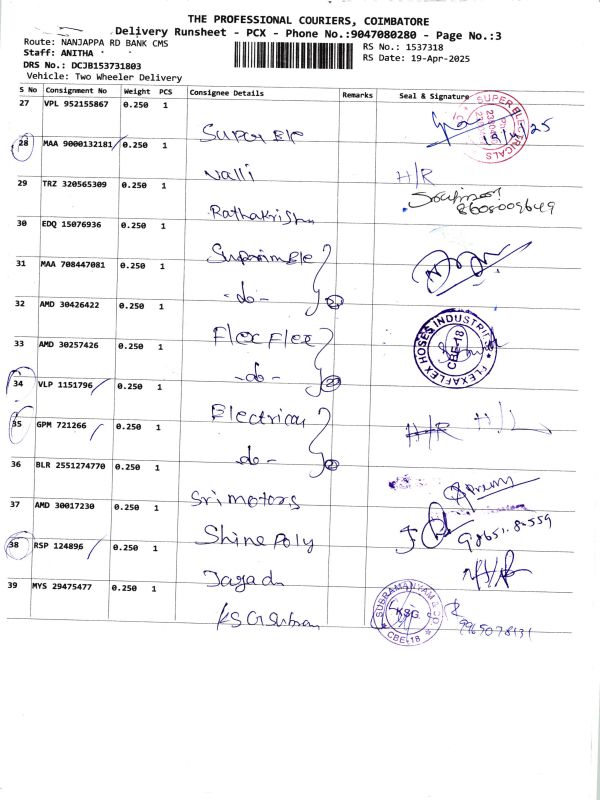 THE PROFESSIONAL COURIERS, COIMBATORE
Delivery Runsheet - PCX - Phone No.:9047080280 - Page No.:3
Route: NANJAPPA RD BANK CMS
RS No.: 1537318
Staff: ANITHA
RS Date: 19-Apr-2025
DRS No.: DCJB153731803
Vehicle: Two Wheeler Delivery
S No Consignment No Weight PCS Consignee Details Remarks Seal & Signature
27 VPL 952155867 0.250 1 Super Ele
SUPER ELECTRICALS
19/4/25
28 MAA 9000132181 0.250 1 Valli H/R
29 TRZ 320565309 0.250 1 Rathakrishn
8608009649
30 EDQ 15076936 0.250 1
31 MAA 708447081 0.250 1 -do- 2
32 AMD 30426422 0.250 1 Flex Flex
FLEXAFLEX HOSES INDUSTRIES
CBE-18
33 AMD 30257426 0.250 1 -do- 2
34 VLP 1151796 0.250 1 Electrical H/R H/L
35 GPM 721266 0.250 1 -do- 2
36 BLR 2551274770 0.250 1 Sri motors
37 AMD 30017230 0.250 1 Shine Poly
98651.80559
38 RSP 124896 0.250 1 Jagad
39 MYS 29475477 0.250 1 KSG Subram
SUBRAMANYAM & CO.
KSG
CBE-18
9965078431